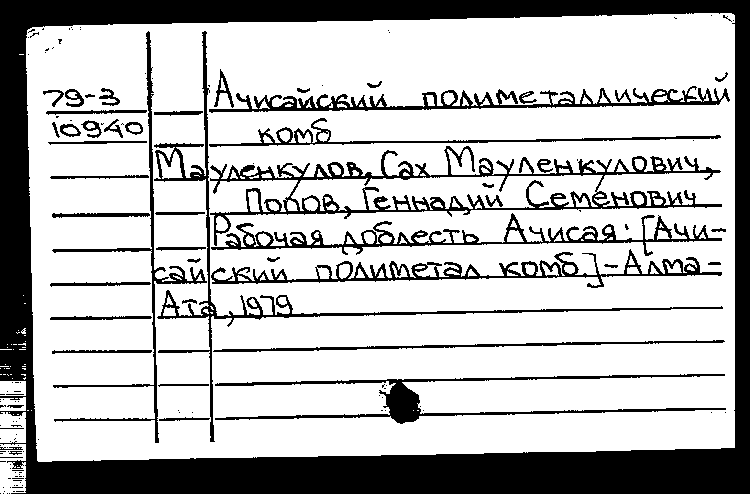 79-3 Ачисайский полиметаллический
10940 комб
Мауленкулов, Сах Мауленкулович,
Попов, Геннадий Семенович
Рабочая доблесть Ачисая: [Ачи-
сайский полиметал комб.]-Алма-
Ата, 1979